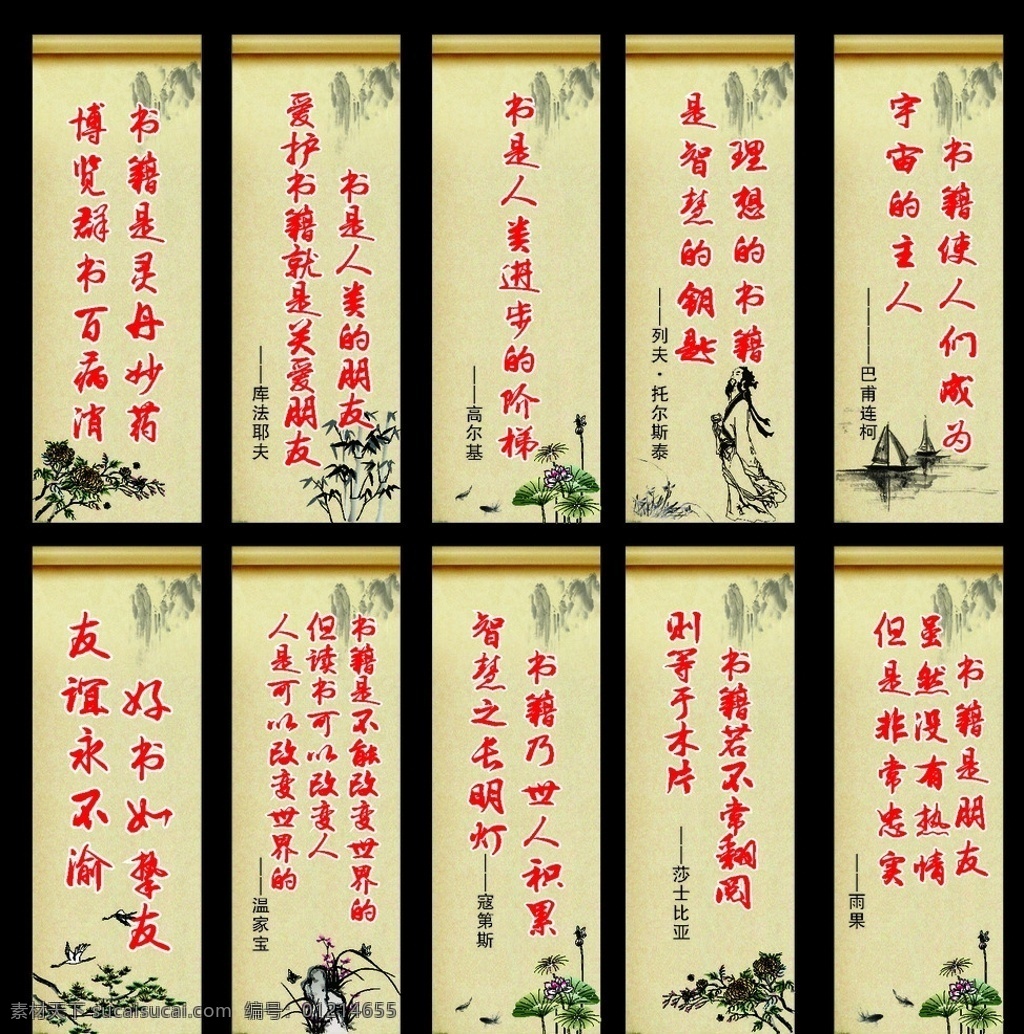 书籍是灵丹妙药
博览群书百病消
书是人类的朋友
爱护书籍就是关爱朋友
——库法耶夫
书是人类进步的阶梯
——高尔基
理想的书籍
是智慧的钥匙
——列夫·托尔斯泰
书籍使人们成为
宇宙的主人
————巴甫连柯
好书如挚友
友谊永不渝
书籍是不能改变世界的
但读书可以改变人
人是可以改变世界的
——温家宝
书籍乃世人积累
智慧之长明灯
——寇第斯
书籍若不常翻阅
则等于木片
———莎士比亚
书籍是朋友
虽然没有热情
但是非常忠实
——雨果
素材天下 sucaisucai.com 编号：01214655